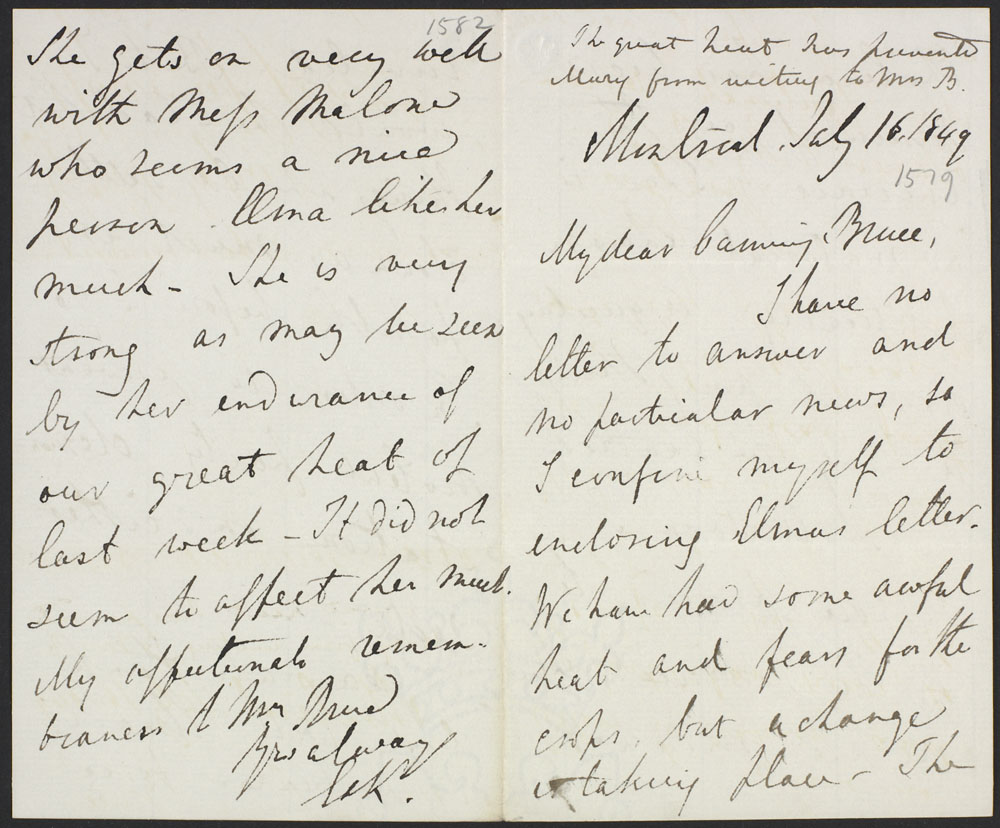 The great heat has prevented
Mary from writing to Mrs B.
Montreal. July 16. 1849
1579
My dear Cumming Bruce,
I have no
letter to answer and
no particular news, so
I confine myself to
enclosing Elmas letter.
We have had some awful
heat and fears for the
crops, but a change
is taking place – The
1582
She gets on very well
with Miss Malone
who seems a nice
person. Elma likes her
much – She is very
strong as may be seen
by her endurance of
our great heat of
last week – It did not
seem to affect her much.
My affectionate remem-
brances to Mrs Bruce
Yrs always
E&K.